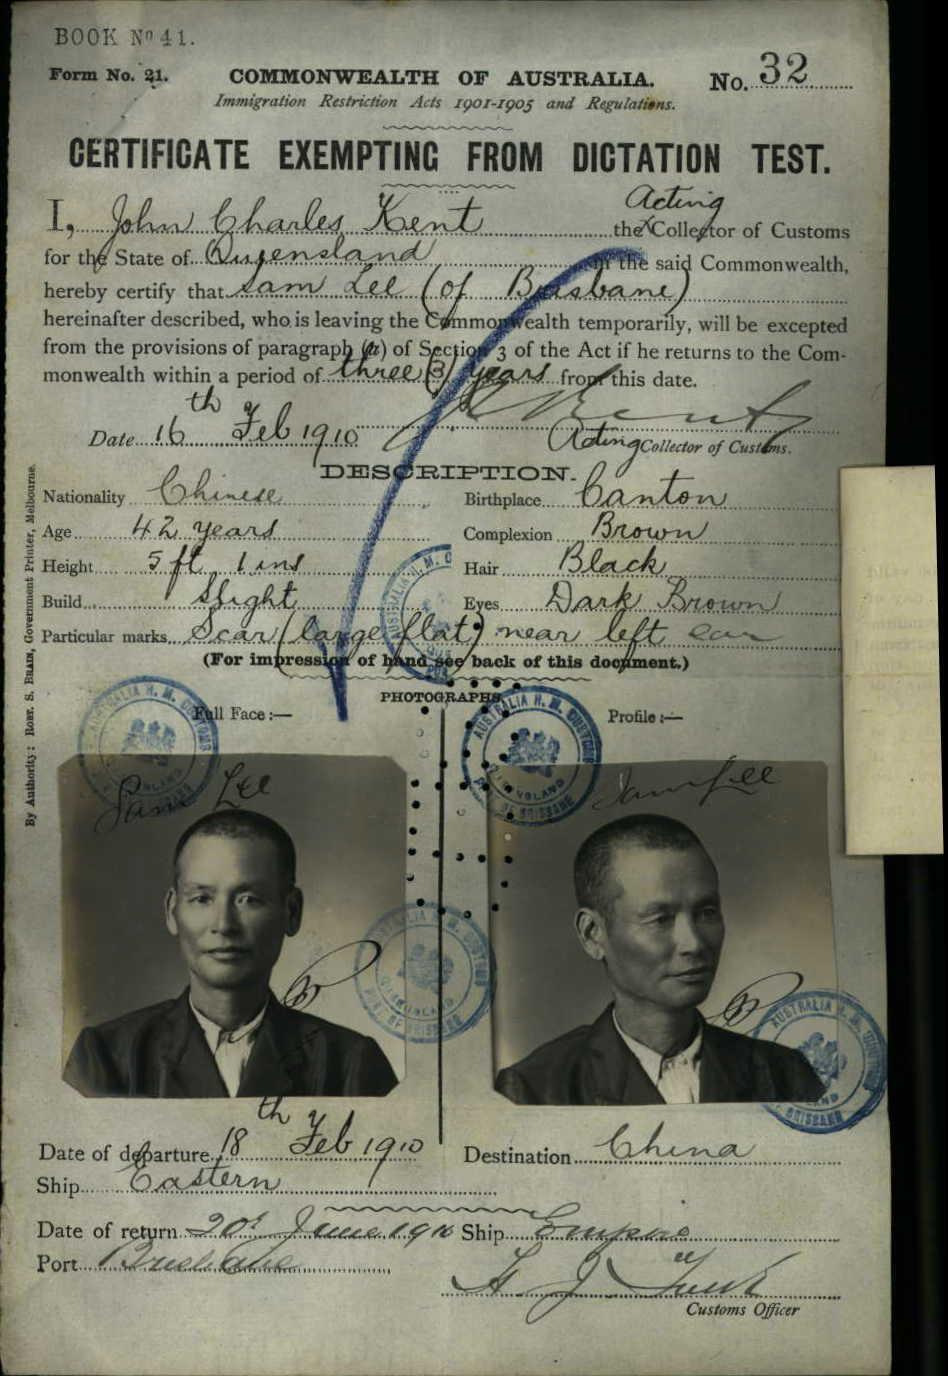 BOOK No 41.
Form No. 21.
COMMONWEALTH OF AUSTRALIA.
No. 32
Immigration Restriction Acts 1901-1905 and Regulations.
CERTIFICATE EXEMPTING FROM DICTATION TEST.
Acting
I, John Charles Kent the Collector of Customs
for the State of Queensland in the said Commonwealth,
hereby certify that Sam Lee (of Brisbane)
hereinafter described, who is leaving the Commonwealth temporarily, will be excepted
from the provisions of paragraph (a) of Section 3 of the Act if he returns to the Com-
monwealth within a period of three (3) years from this date.
Date 16th Feb 1910
J C Kent
Acting Collector of Customs.
DESCRIPTION.
Nationality Chinese
Birthplace Canton
Age 42 years
Complexion Brown
Height 5 ft 1 ins
Hair Black
Build Slight
Eyes Dark Brown
Particular marks Scar (large flat) near left ear
(For impression of hand see back of this document.)
PHOTOGRAPHS.
Full Face:—
Profile:—
AUSTRALIA H. M. CUSTOMS QUEENSLAND PORT OF BRISBANE
Sam Lee
Sam Lee
Date of departure 18th Feb 1910
Destination China
Ship Eastern
Date of return 20t June 1910 Ship Empire
Port Brisbane
Customs Officer
By Authority: ROBT. S. BRAIN, Government Printer, Melbourne.